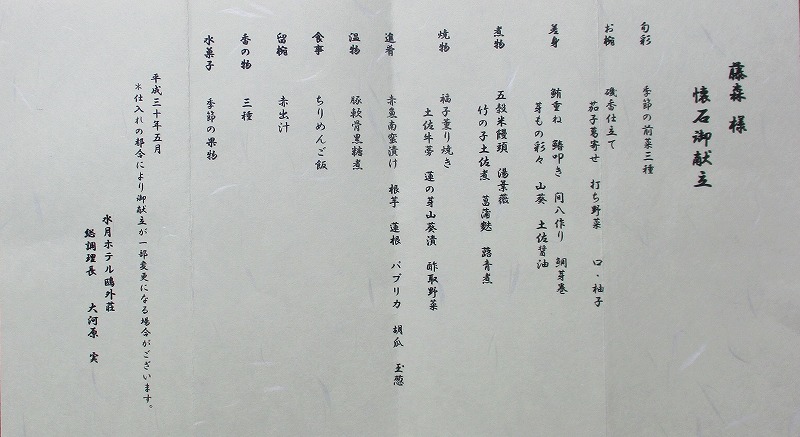 藤森 様
懐石御献立
旬彩 季節の前菜三種
お椀 磯香仕立て
茄子葛寄せ 打ち野菜 口・柚子
差身 鮪重ね 鰆叩き 間八作り 鯛芽巻
芽もの彩々 山葵 土佐醤油
煮物 五穀米饅頭 湯葉薇
竹の子土佐煮 菖蒲麩 蕗青煮
焼物 福子薫り焼き
土佐牛蒡 蓮の芽山葵漬 酢取野菜
進肴 赤魚南蛮漬け 根芋 蓮根 パプリカ 胡瓜 玉葱
温物 豚軟骨黒糖煮
食事 ちりめんご飯
留椀 赤出汁
香の物 三種
水菓子 季節の果物
平成三十年五月
*仕入れの都合により御献立が一部変更になる場合がございます。
水月ホテル鴎外荘
総調理長 大河原 実